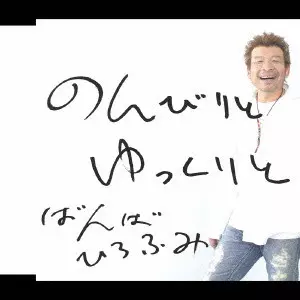 のんびりと
ゆっくりと
ばんば
ひろふみ